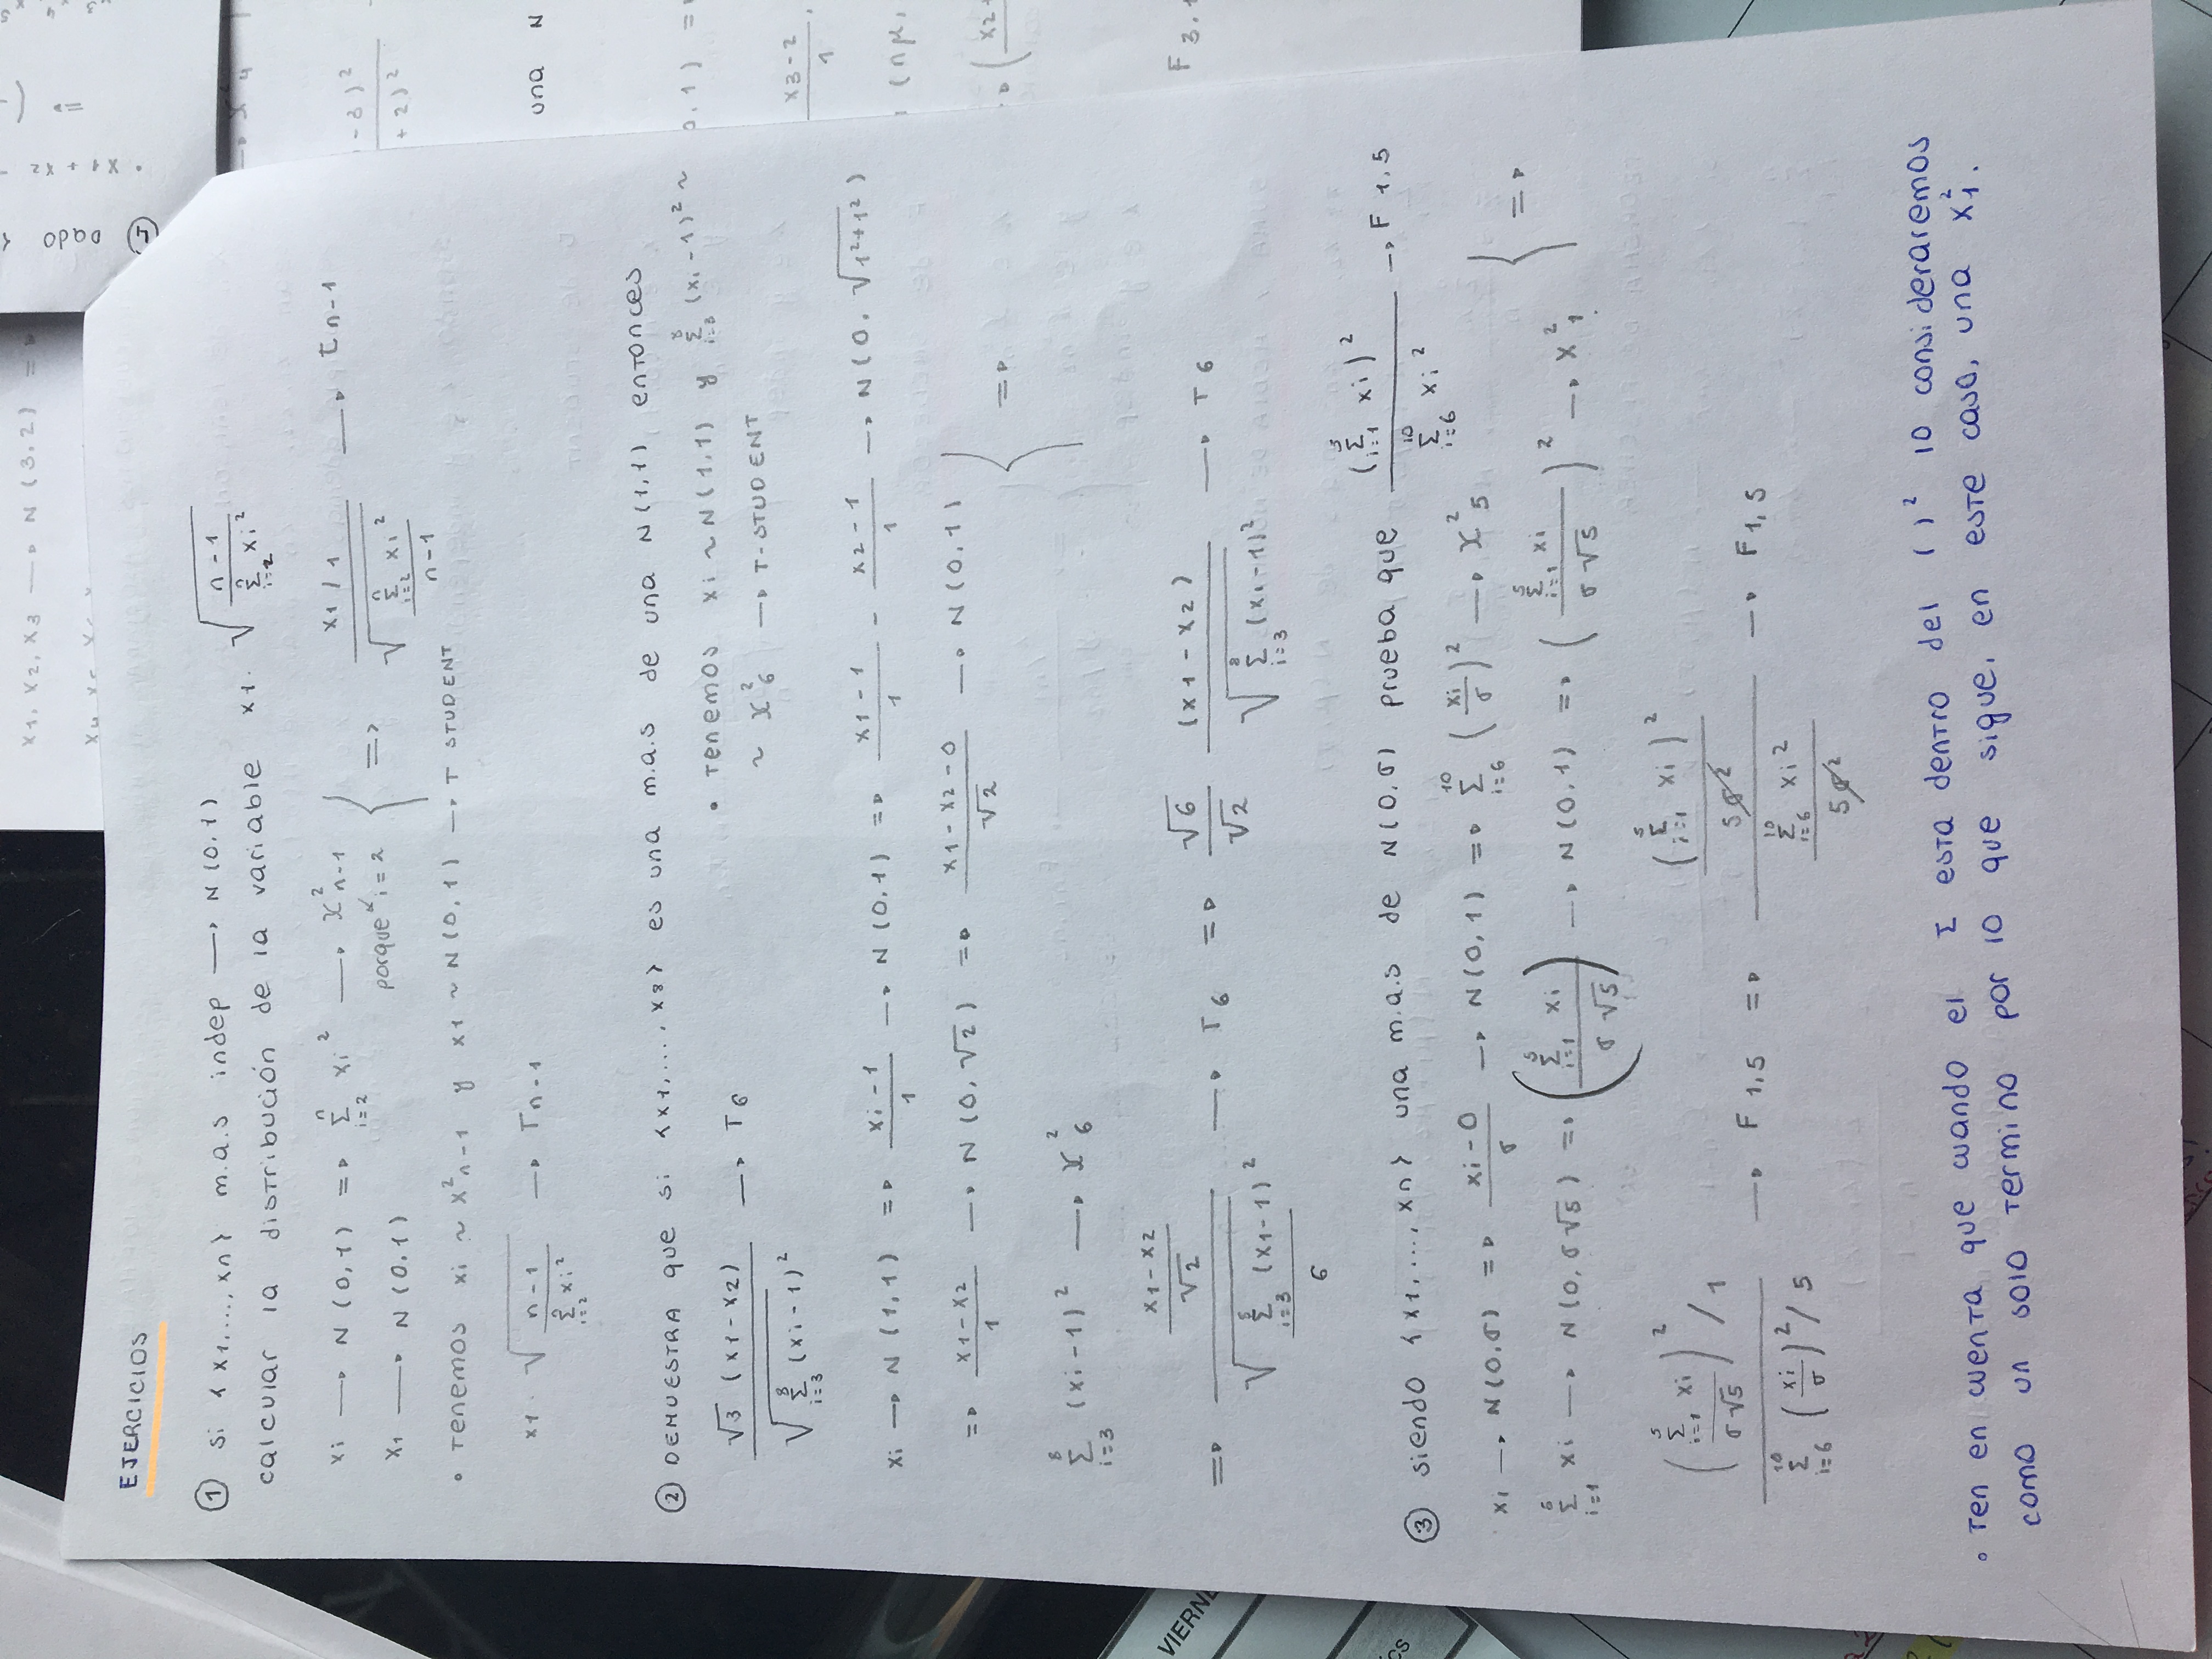 EJERCICIOS
① si {x1,...,xn} m.a.s indep → N(0,1)
calcular la distribución de la variable x1 · √((n-1)/(Σ_{i=2}^{n} xi²))
xi → N(0,1) ⇒ Σ_{i=2}^{n} xi² → χ²_{n-1}
porque i=2
x1 → N(0,1)
} ⇒ (x1/1)/√((Σ_{i=2}^{n} xi²)/(n-1)) → t_{n-1}
• Tenemos xi ~ χ²_{n-1} y x1 ~ N(0,1) → T STUDENT
x1 · √((n-1)/(Σ_{i=2}^{n} xi²)) → T_{n-1}
② DEMUESTRA que si {x1,...,x8} es una m.a.s de una N(1,1) entonces
(√3 (x1-x2))/√(Σ_{i=3}^{8} (xi-1)²) → T6
• Tenemos xi ~ N(1,1) y Σ_{i=3}^{8} (xi-1)² ~
~ χ²_6 → T-STUDENT
xi → N(1,1) ⇒ (xi-1)/1 → N(0,1) ⇒ (x1-1)/1 - (x2-1)/1 → N(0,√(1²+1²))
⇒ (x1-x2)/1 → N(0,√2) ⇒ (x1-x2-0)/√2 → N(0,1)
Σ_{i=3}^{8} (xi-1)² → χ²_6
} ⇒
⇒ ((x1-x2)/√2)/√((Σ_{i=3}^{8} (x1-1)²)/6) → T6 ⇒ (√6/√2) (x1-x2)/√(Σ_{i=3}^{8} (xi-1)²) → T6
③ siendo {x1,...,xn} una m.a.s de N(0,σ) prueba que (Σ_{i=1}^{5} xi)²/(Σ_{i=6}^{10} xi²) → F1,5
xi → N(0,σ) ⇒ (xi-0)/σ → N(0,1) ⇒ Σ_{i=6}^{10} (xi/σ)² → χ²_5
Σ_{i=1}^{5} xi → N(0,σ√5) ⇒ ((Σ_{i=1}^{5} xi)/(σ√5)) → N(0,1) ⇒ ((Σ_{i=1}^{5} xi)/(σ√5))² → χ²_1
} ⇒
(((Σ_{i=1}^{5} xi)/(σ√5))²/1)/(Σ_{i=6}^{10} (xi/σ)²/5) → F1,5 ⇒ ((Σ_{i=1}^{5} xi)²/(5σ²))/((Σ_{i=6}^{10} xi²)/(5σ²)) → F1,5
• Ten en cuenta que cuando el Σ esta dentro del ( )² lo consideraremos
como un solo termino por lo que sigue, en este caso, una χ²_1.
x1, x2, x3 → N(3,2) ⇒
④ Dado {
• x1 + x2
→ χ²_4
-3)²
+2)²
una N
0,1) ⇒
(x3-2)/1
(nμ,
F3,1
VIERNE